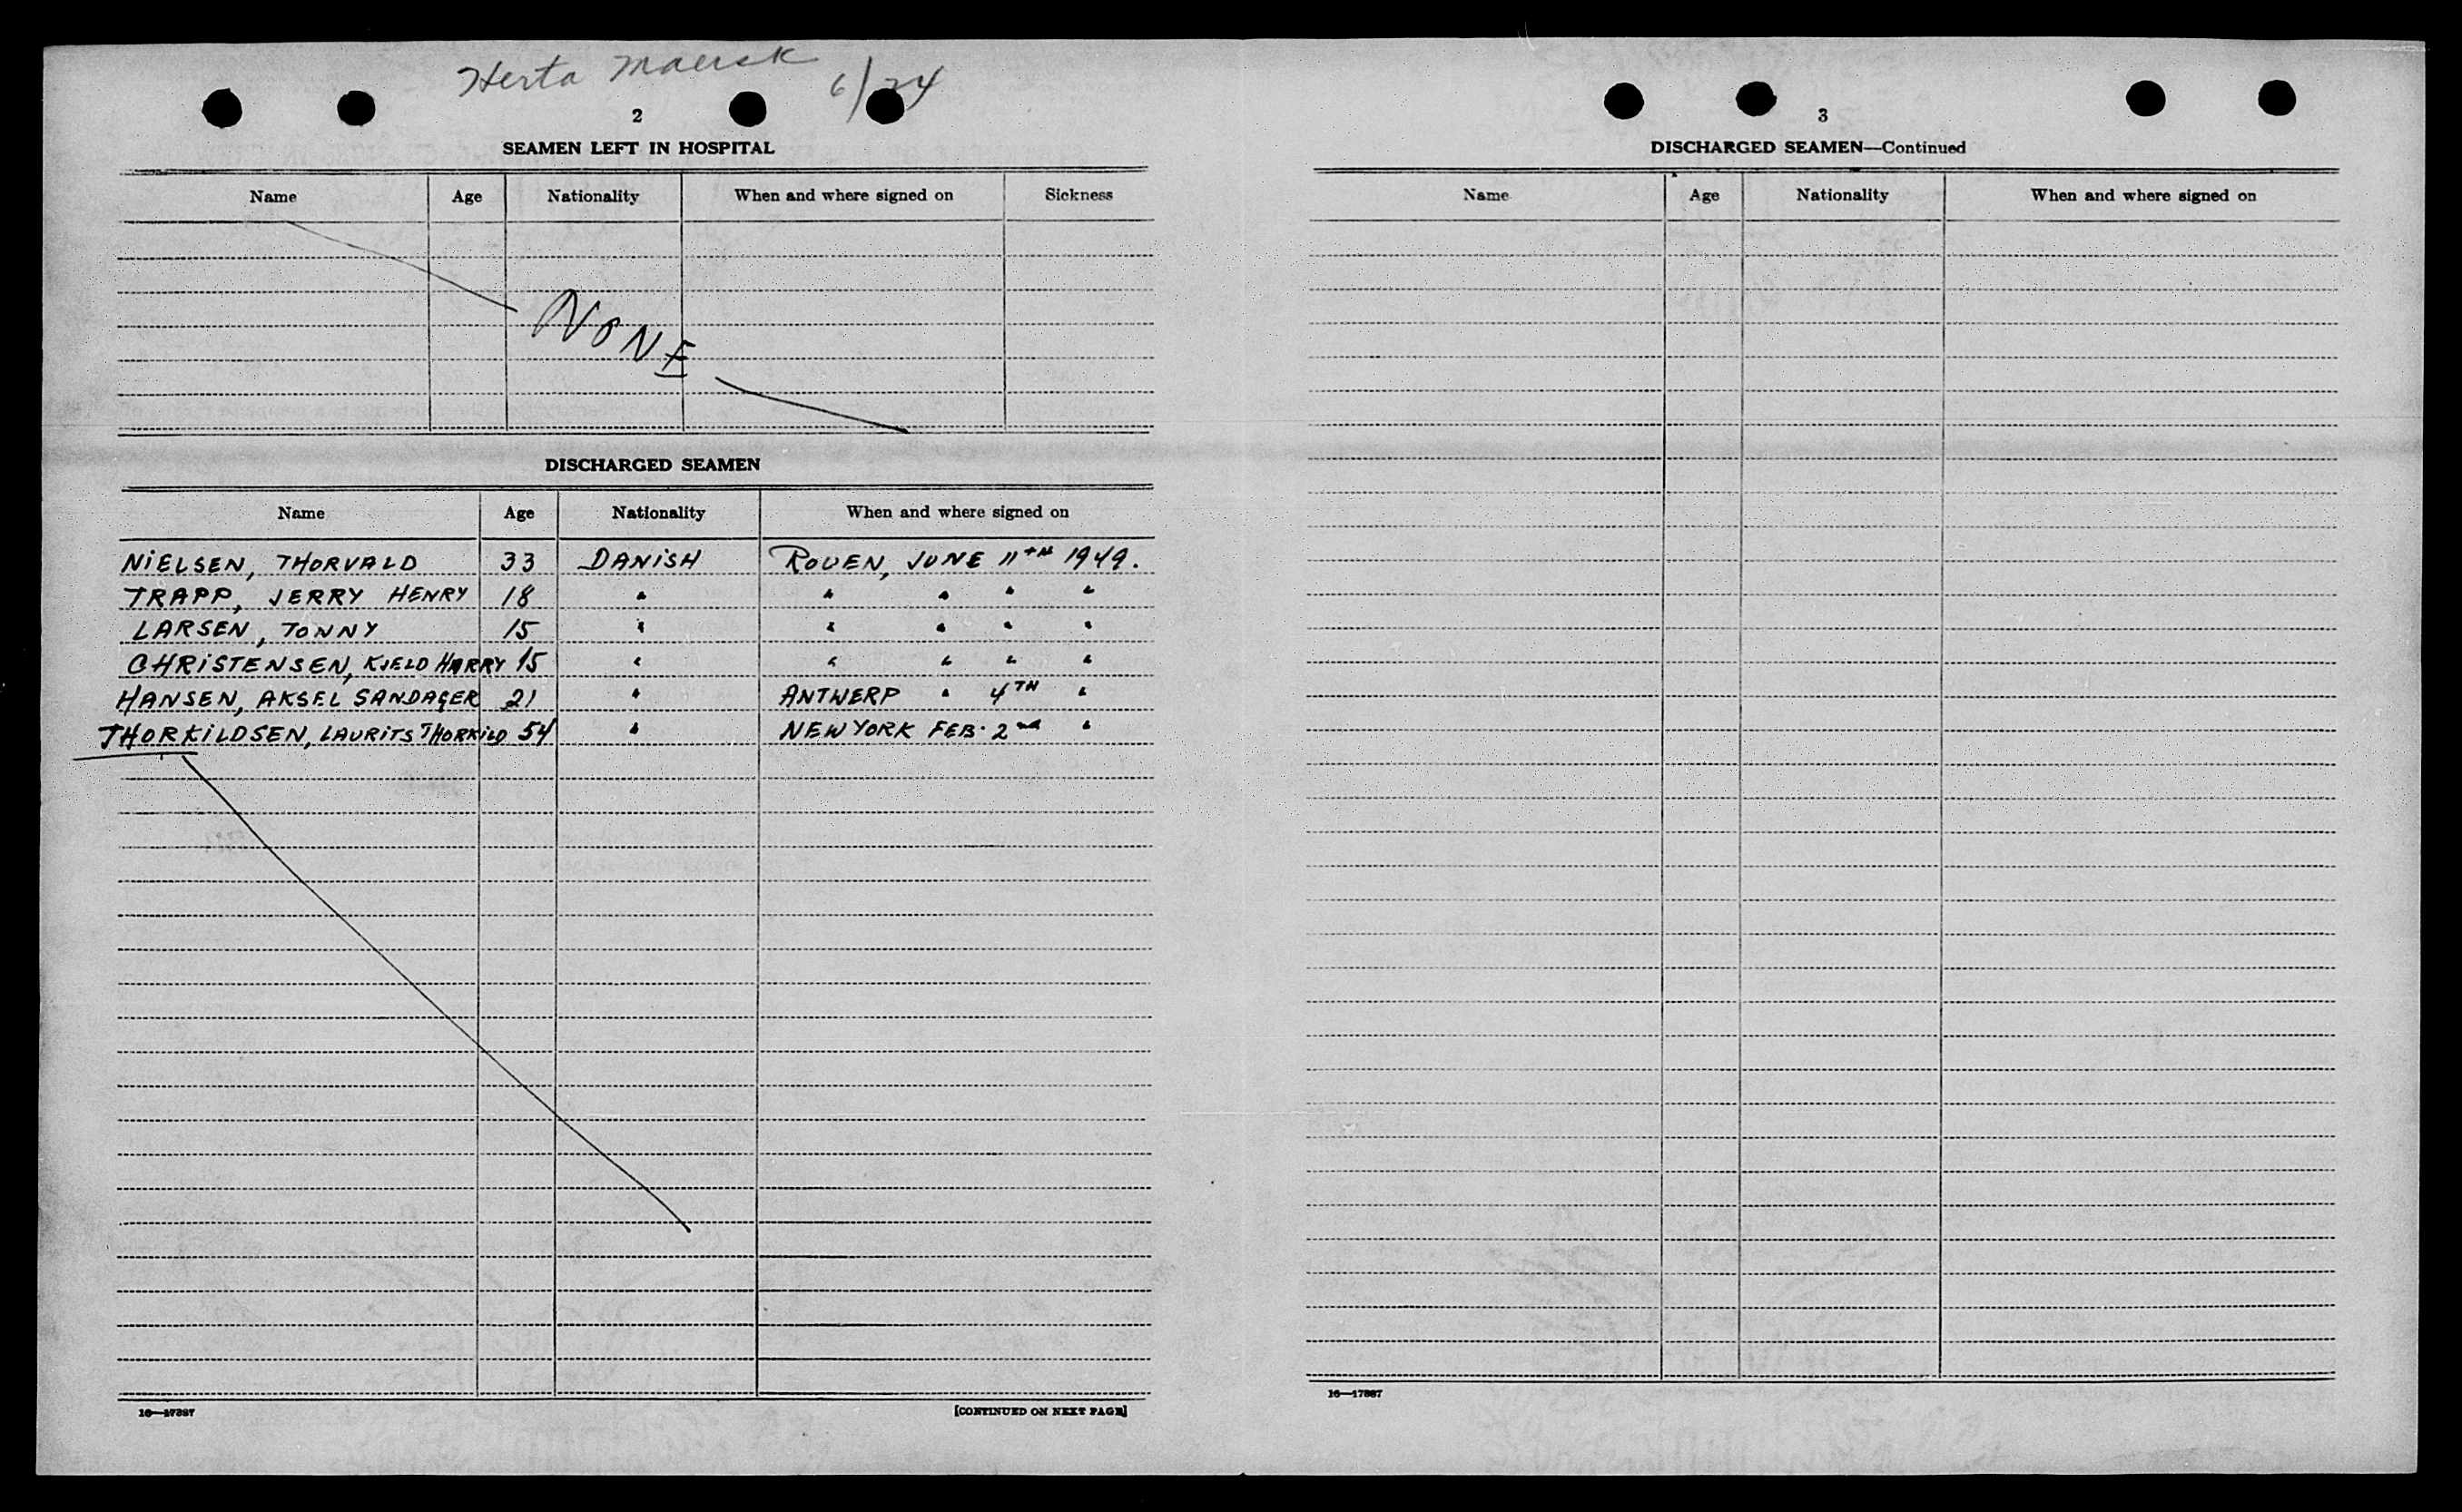 Herta Maersk 6/24
2
SEAMEN LEFT IN HOSPITAL
Name Age Nationality When and where signed on Sickness
NONE
DISCHARGED SEAMEN
Name Age Nationality When and where signed on
NIELSEN, THORVALD 33 DANISH ROUEN, JUNE 11TH 1949.
TRAPP, JERRY HENRY 18 " " " " "
LARSEN, TONNY 15 " " " " "
CHRISTENSEN, KJELD HARRY 15 " " " " "
HANSEN, AKSEL SANDAGER 21 " ANTWERP " 4TH "
THORKILDSEN, LAURITS THORKILD 54 " NEW YORK FEB. 2nd "
16—17387
[CONTINUED ON NEXT PAGE]
3
DISCHARGED SEAMEN—Continued
Name Age Nationality When and where signed on
16—17387